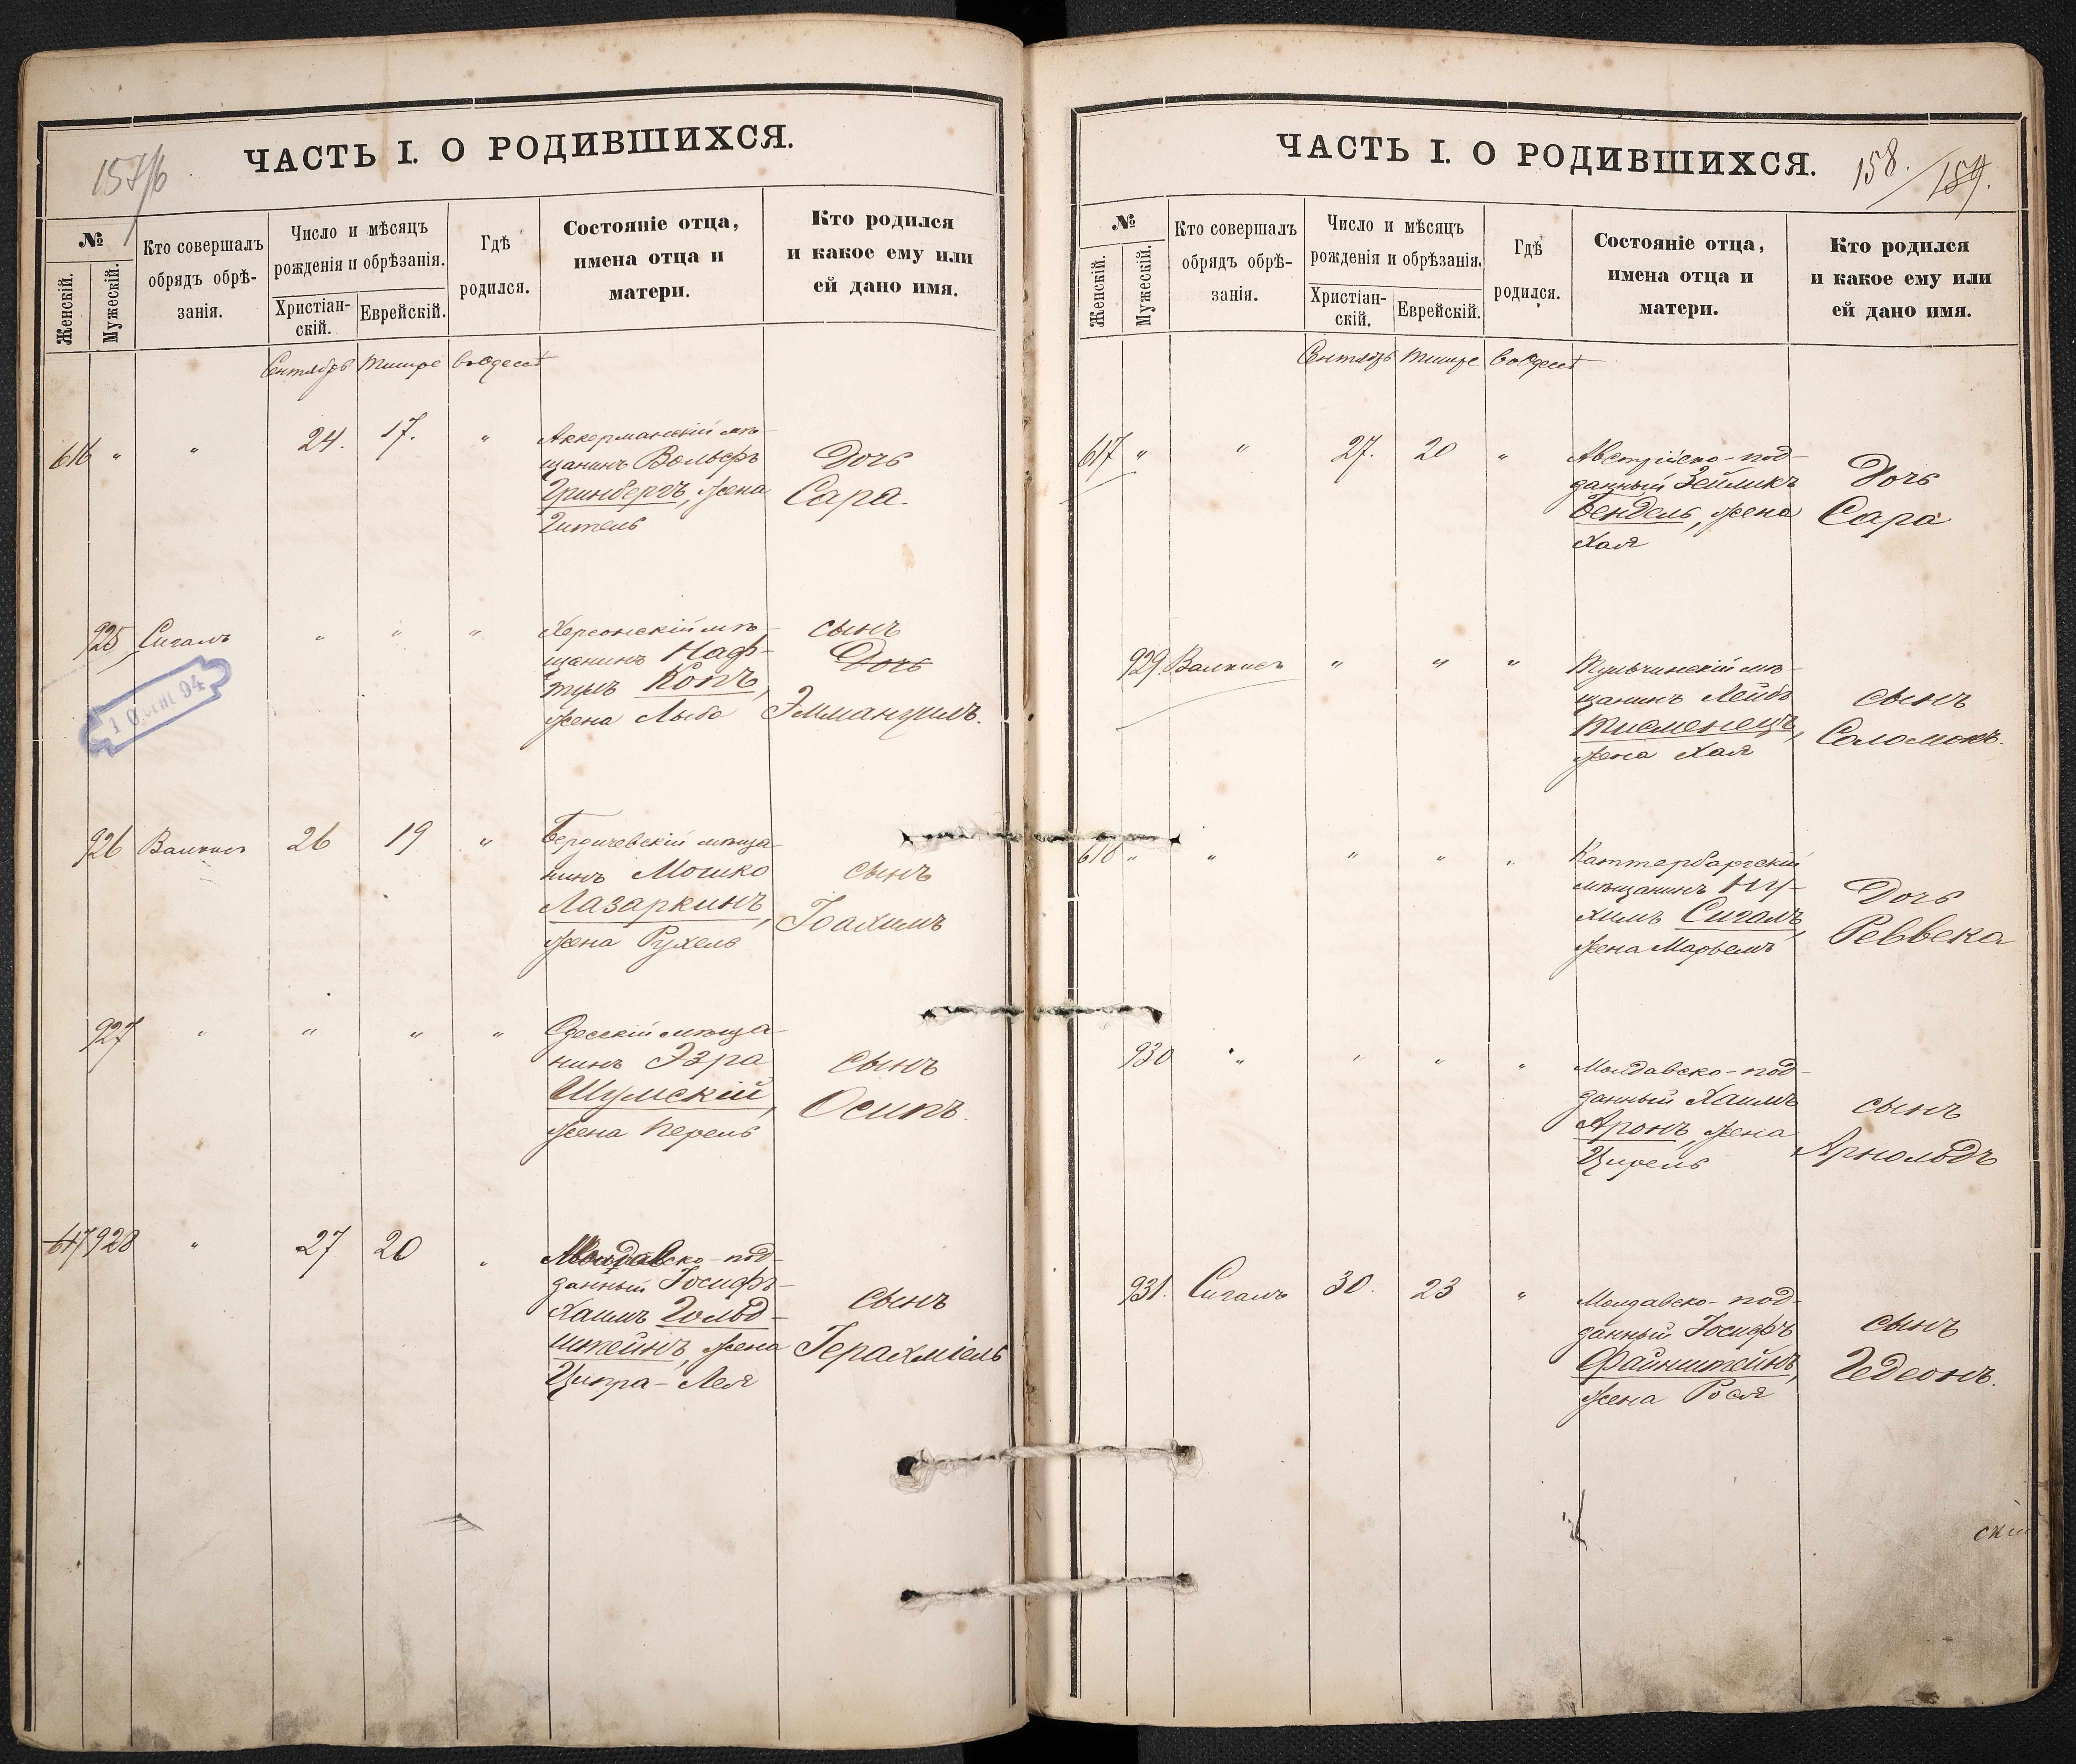 157/6
ЧАСТЬ I. О РОДИВШИХСЯ.
№
Женскій.
Мужескій.
Кто совершалъ
обрядъ обрѣ-
занія.
Число и мѣсяцъ
рожденія и обрѣзанія.
Христіан-
скій.
Еврейскій.
Гдѣ
родился.
Состояніе отца,
имена отца и
матери.
Кто родился
и какое ему или
ей дано имя.
Сентябрь Тишре въ Одессѣ
616 " " 24. 17. "
Аккерманскій мѣ-
щанинъ Вольфъ
Гринбергъ, жена
Гитель
Дочь
Сара.
925 Сигалъ " " "
Херсонскій мѣ-
щанинъ Наф-
тулъ Копъ,
жена Лыба
сынъ
Дочь
Эммануилъ.
94
926 26 19 "
Бердичевскій мѣща-
нинъ Мошко
Лазаркинъ,
жена Рухель
сынъ
Іоахимъ
927 " " " "
Одесскій мѣща-
нинъ Эзра
Шумскій,
жена Перель
сынъ
Осипъ.
617 928 " 27 20 "
Молдавско-под-
данный Іосифъ-
Хаимъ Гольд-
штейнъ, жена
Ципра-Лея
сынъ
Іерахміель
158. / 159.
ЧАСТЬ I. О РОДИВШИХСЯ.
№
Женскій.
Мужескій.
Кто совершалъ
обрядъ обрѣ-
занія.
Число и мѣсяцъ
рожденія и обрѣзанія.
Христіан-
скій.
Еврейскій.
Гдѣ
родился.
Состояніе отца,
имена отца и
матери.
Кто родился
и какое ему или
ей дано имя.
Сентябрь Тишре въ Одессѣ
617 " " 27. 20 "
Австрійско-под-
данный Зейликъ
Бендель, жена
Хая
Дочь
Сара
929. " " "
Тульчинскій мѣ-
щанинъ Лейбъ
Тисменецъ,
жена Хая
сынъ
Соломонъ.
618 " " " " "
мѣщанинъ Ну-
химъ Сигалъ,
жена Марьемъ
Дочь
Реввека
930 " " " "
Молдавско-под-
данный Хаимъ
Аронъ, жена
Цирель
сынъ
Арнольдъ
931. Сигалъ 30. 23 "
Молдавско-под-
данный Іосифъ
Файнштейнъ,
жена Рося
сынъ
Гедеонъ.